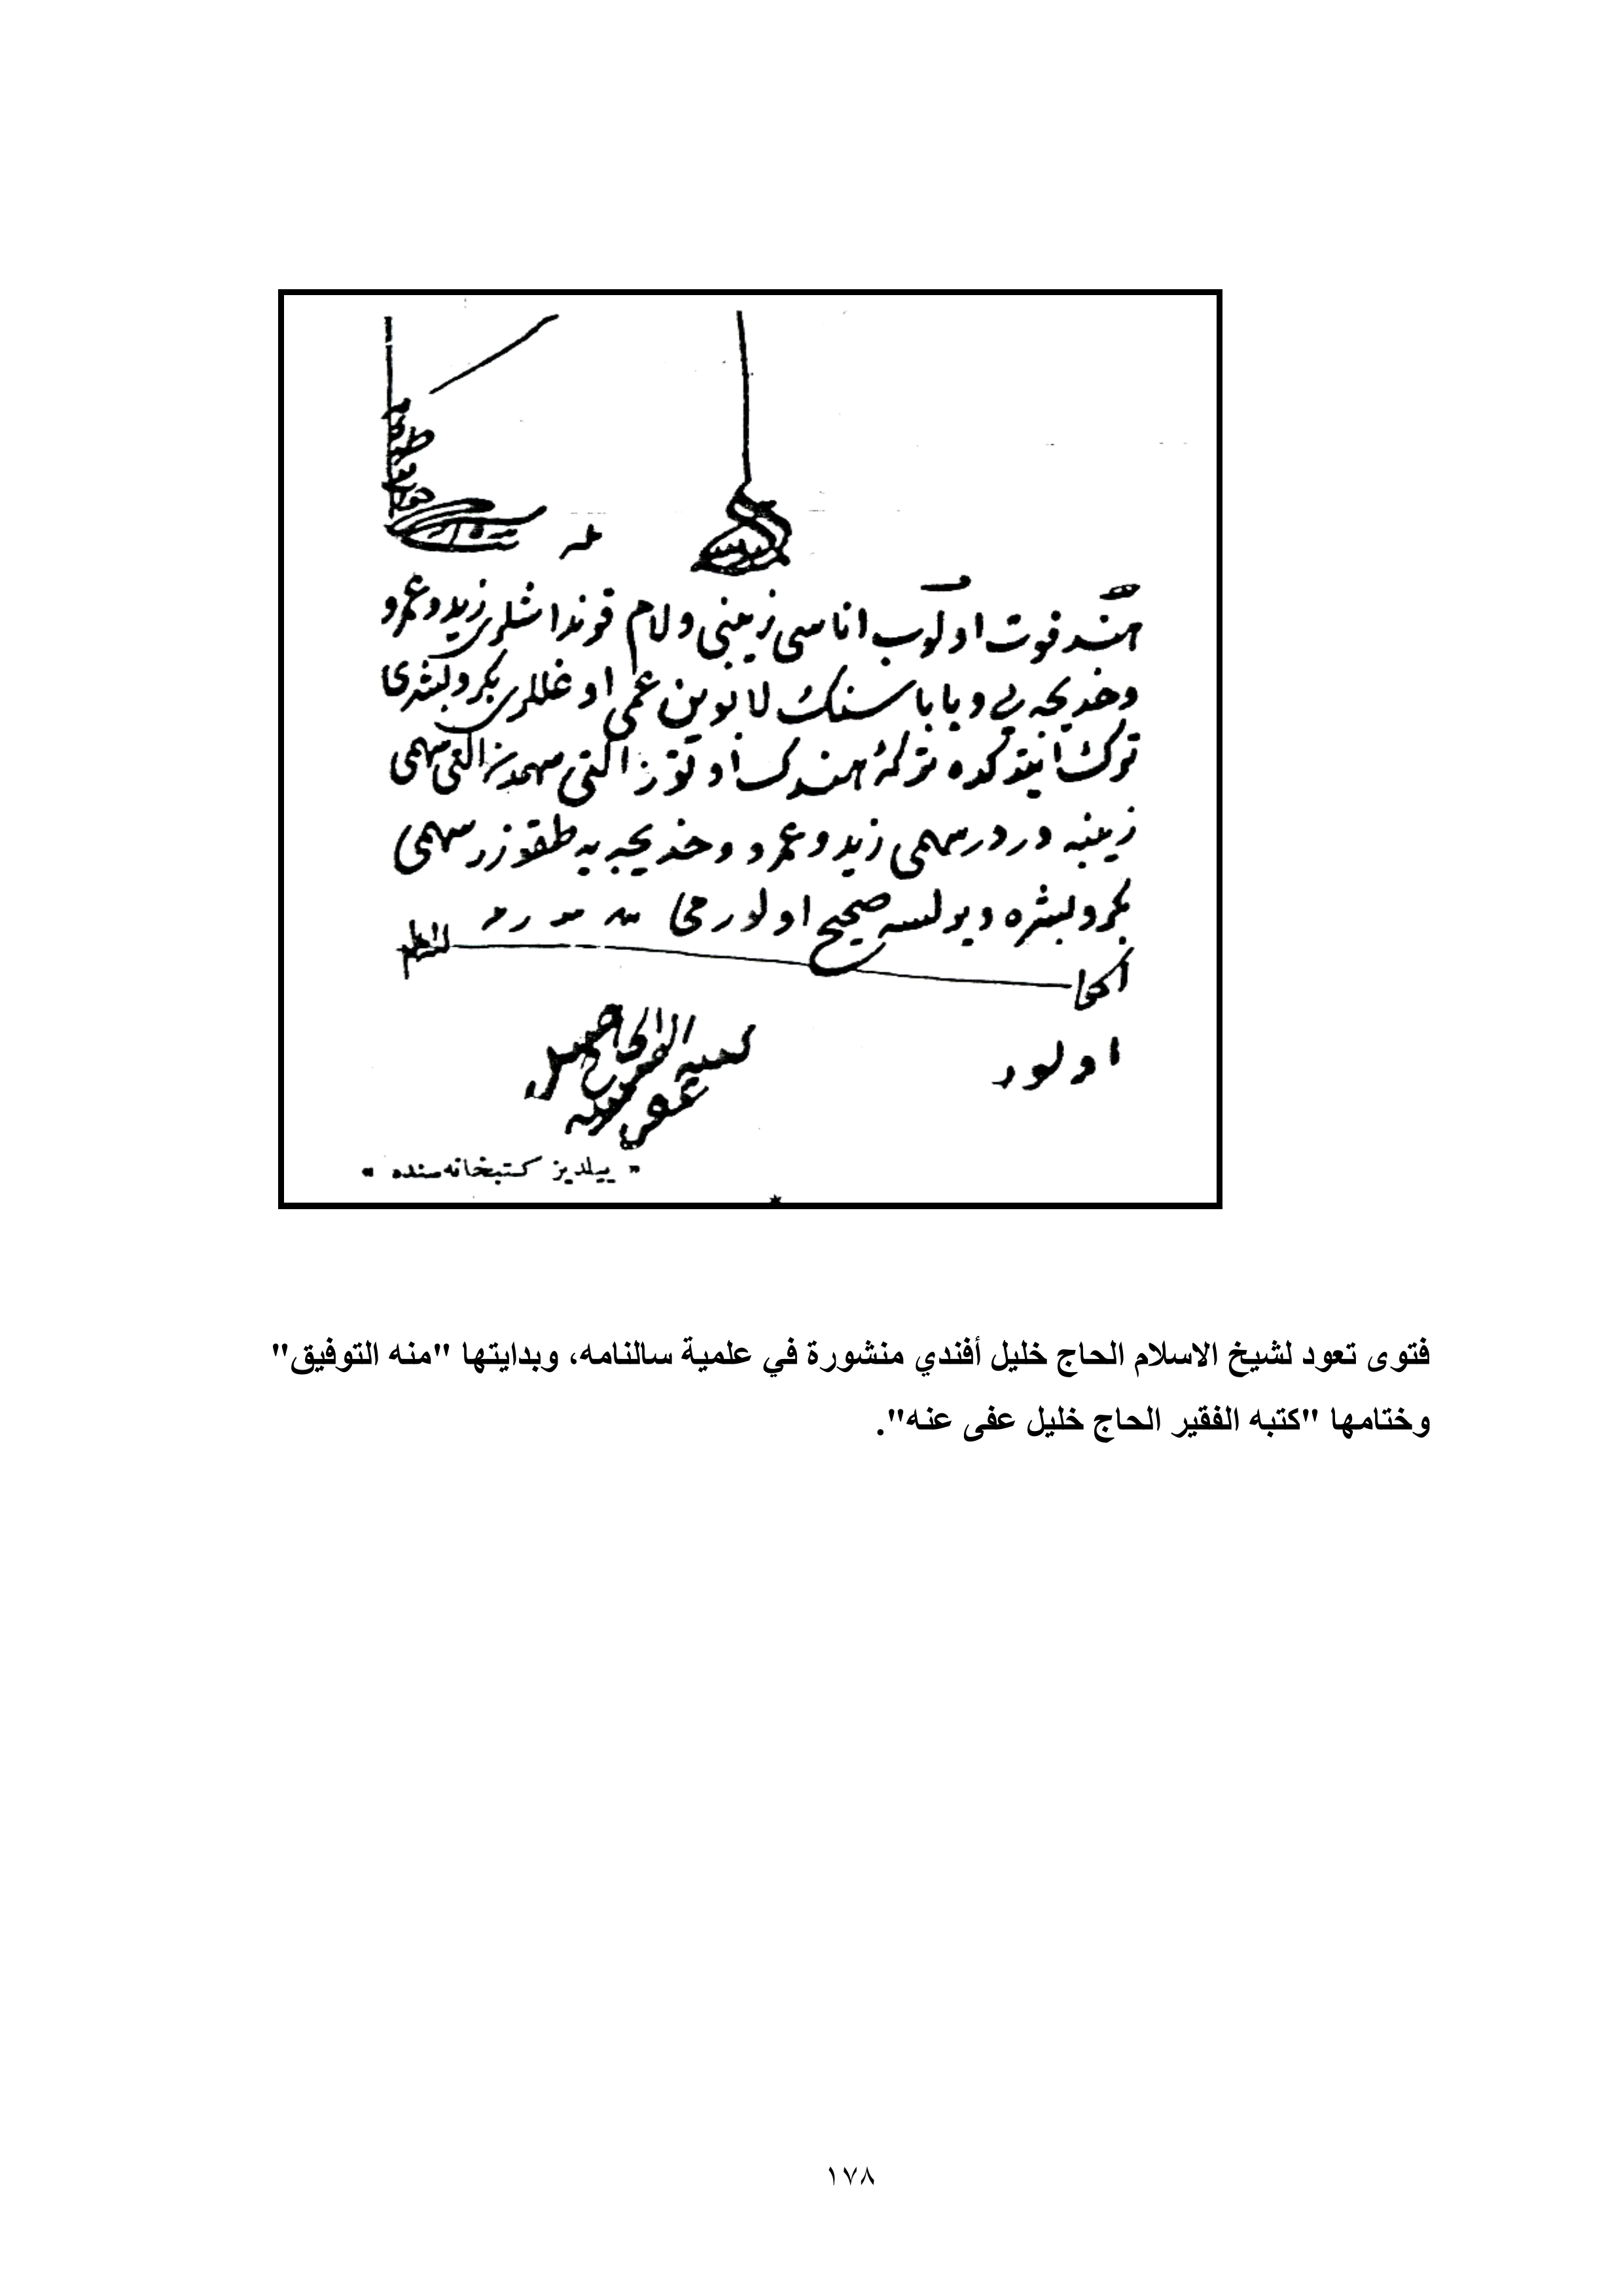 هند فوت اولوب اناسی زینبی ولام قرنداشلری زید وعمرو
وخدیجه یی وباباسنك لابوین عمی اوغللری بکر وبشری
ترك ایتدکده ترکۀ هندك اوتوز التی سهمدن التی سهمی
زینبه دردر سهمی زید وعمرو وخدیجه یه طقوزر سهمی
بکر وبشره ویرلسه صحیح اولورمی
الجواب
اولور
كتبه الفقير الحاج خليل
عفى عنه
« ییلدیز کتبخانه‌سنده »
فتوى تعود لشيخ الاسلام الحاج خليل أفندي منشورة في علمية سالنامه، وبدايتها "منه التوفيق"
وختامها "كتبه الفقير الحاج خليل عفى عنه".
١٧٨